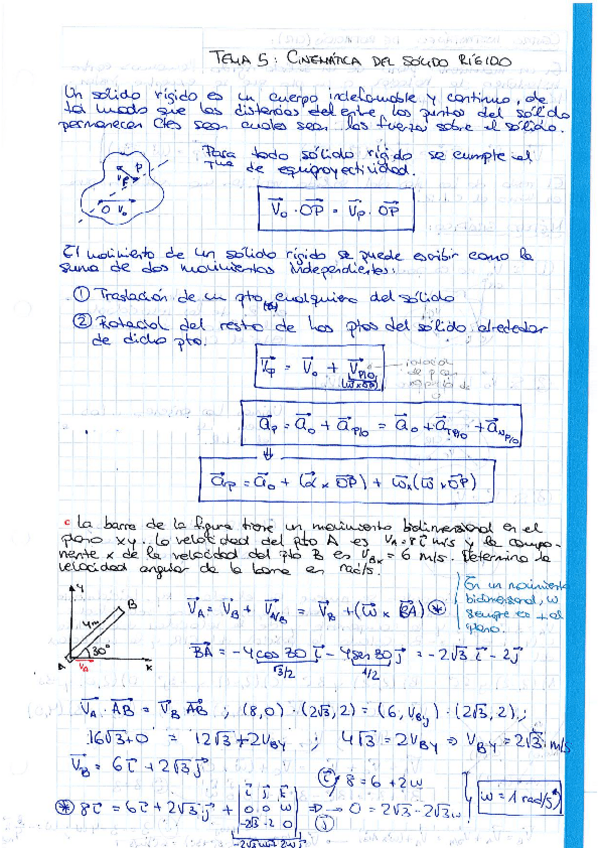 TEMA 5: CINEMÁTICA DEL SÓLIDO RÍGIDO
Un sólido rígido es un cuerpo indeformable y continuo, de
tal modo que las distancias entre los puntos del sólido
permanecen ctes sean cuales sean las fuerzas sobre el sólido.
Para todo sólido rígido se cumple el
Tma de equiproyectividad.
P
O
V⃗o · OP⃗ = V⃗p · OP⃗
El movimiento de un sólido rígido se puede escribir como la
suma de dos movimientos independientes:
① Traslación de un pto cualquiera del sólido
② Rotación del resto de los ptos del sólido alrededor
de dicho pto.
V⃗p = V⃗o + V⃗P/O
(ω⃗ x OP⃗)
rotación
de P con
respecto de
a⃗p = a⃗o + a⃗P/O = a⃗o + a⃗TP/O + a⃗NP/O
⇓
a⃗p = a⃗o + (α⃗ x OP⃗) + ω⃗x(ω⃗ x OP⃗)
c La barra de la figura tiene un movimiento bidimensional en el
plano xy. La velocidad del pto A es VA = 8i⃗ m/s y la compo-
nente x de la velocidad del pto B es VBx = 6 m/s. Determina la
velocidad angular de la barra en rad/s.
En un movimiento
bidimensional, ω
siempre es ⊥ al
plano.
Y
B
4m
30°
A
VA
x
V⃗A = V⃗B + V⃗A/B = V⃗B + (ω⃗ x BA⃗) ⊛
BA⃗ = -4cos30 i⃗ - 4sen30 j⃗ = -2√3 i⃗ - 2j⃗
√3/2 1/2
V⃗A · AB⃗ = V⃗B · AB⃗ ; (8,0) · (2√3, 2) = (6, VBy) · (2√3, 2);
16√3+0 = 12√3 + 2VBy ; 4√3 = 2VBy ⇒ VBy = 2√3 m/s
V⃗B = 6i⃗ + 2√3 j⃗
ⓘ 8 = 6 + 2ω
⊛ 8i⃗ = 6i⃗ + 2√3 j⃗ + | i⃗ j⃗ k⃗ | 0 0 ω | -2√3 -2 0 | ⇒ 0 = 2√3 - 2√3ω
ⓙ
ω = 1 rad/s
-2√3ωj + 2ωi